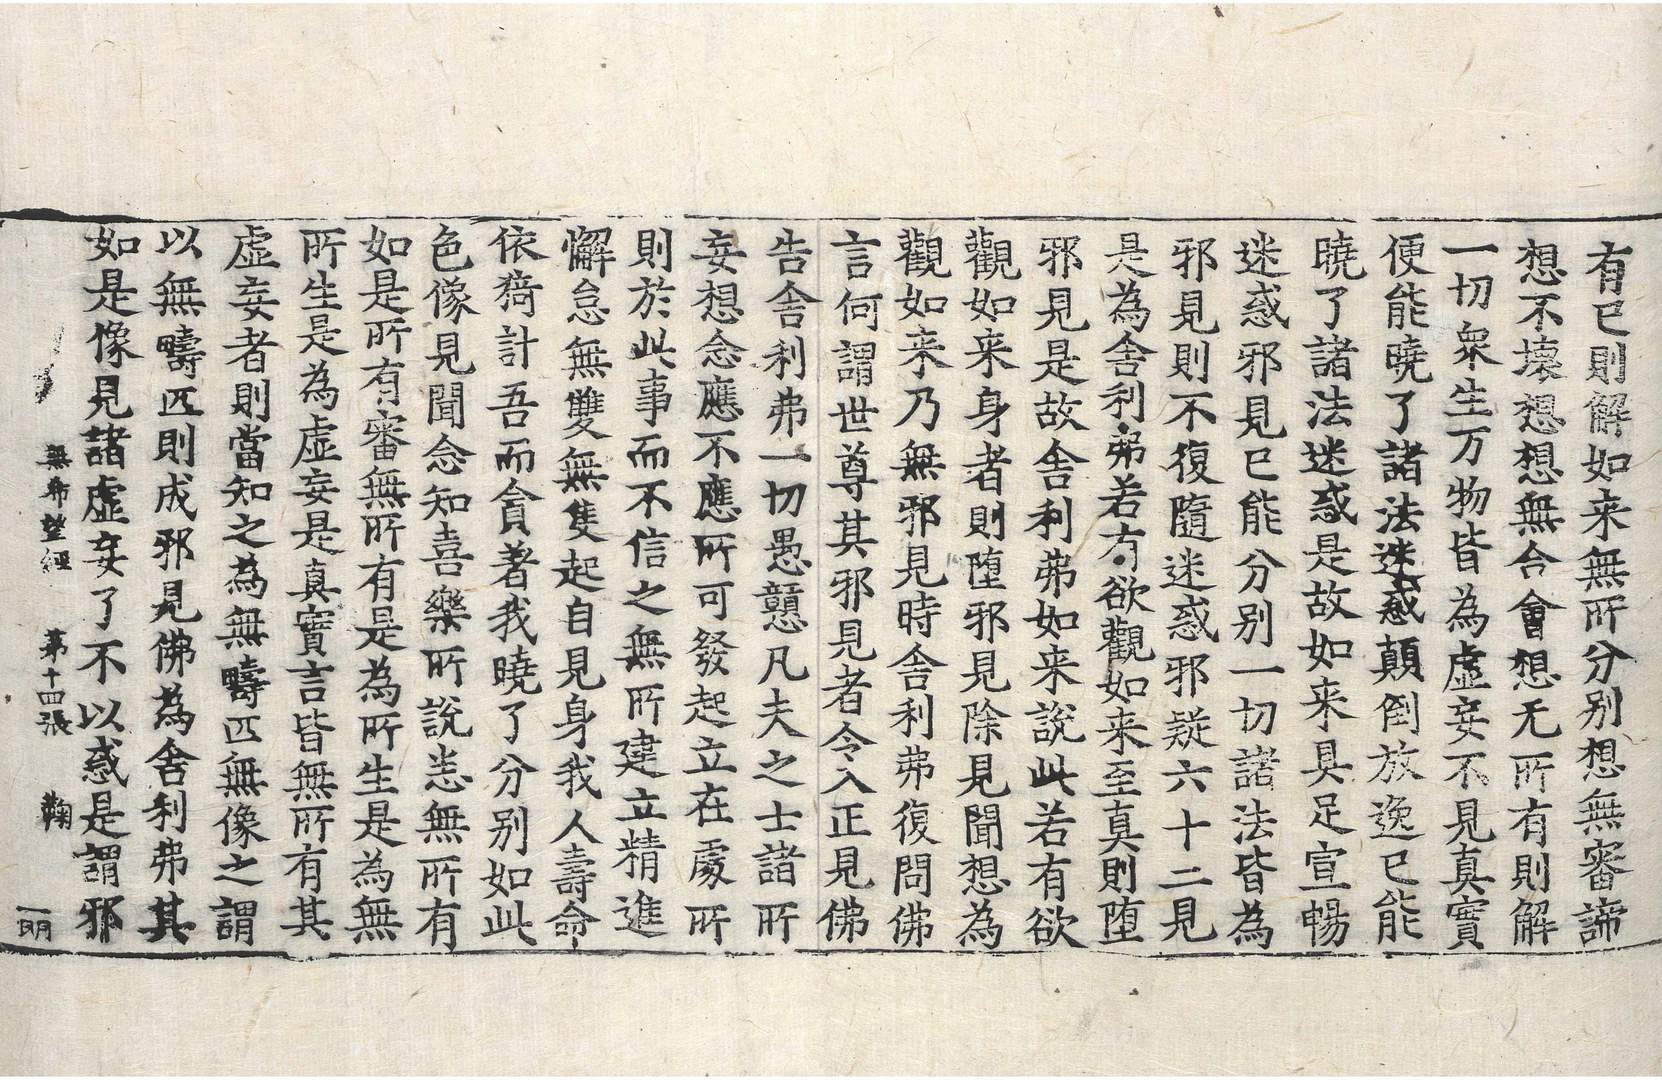 有已則解如来無所分別想無審諦
想不壞想想無合會想无所有則解
一切衆生万物皆為虛妄不見真實
便能曉了諸法迷惑顛倒放逸已能
曉了諸法迷惑是故如来具足宣暢
迷惑邪見已能分別一切諸法皆為
邪見則不復隨迷惑邪疑六十二見
是為舍利弗若有欲觀如来至真則墮
邪見是故舍利弗如来說此若有欲
觀如来身者則墮邪見除見聞想為
觀如来乃無邪見時舍利弗復問佛
言何謂世尊其邪見者令入正見佛
告舍利弗一切愚戇凡夫之士諸所
妄想念應不應所可發起立在處所
則於此事而不信之無所建立精進
懈怠無雙無隻起自見身我人壽命
依猗計吾而貪著我曉了分別如此
色像見聞念知喜樂所說恙無所有
如是所有審無所有是為所生是為無
所生是為虛妄是真實言皆無所有其
虛妄者則當知之為無疇匹無像之謂
以無疇匹則成邪見佛為舍利弗其
如是像見諸虛妄了不以惑是謂邪
無希望經 第十四張 鞠
一明